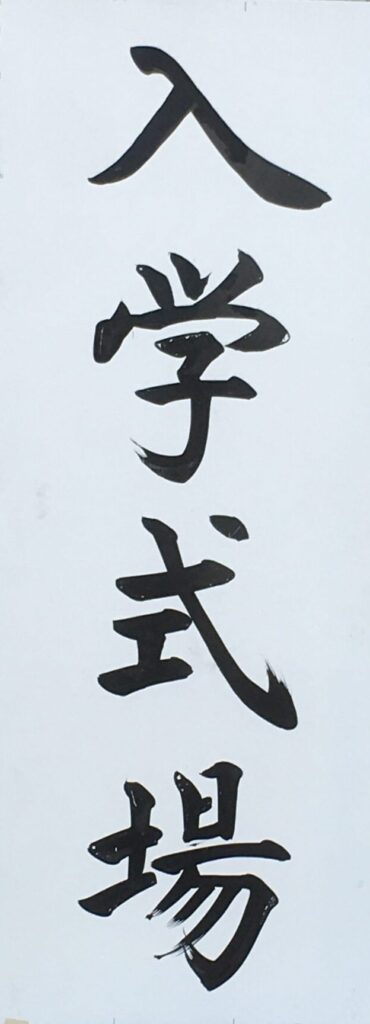 入学式場